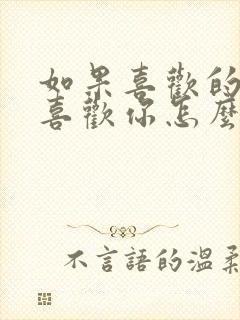 如果喜歡的
喜歡你怎麼
不言語的溫柔